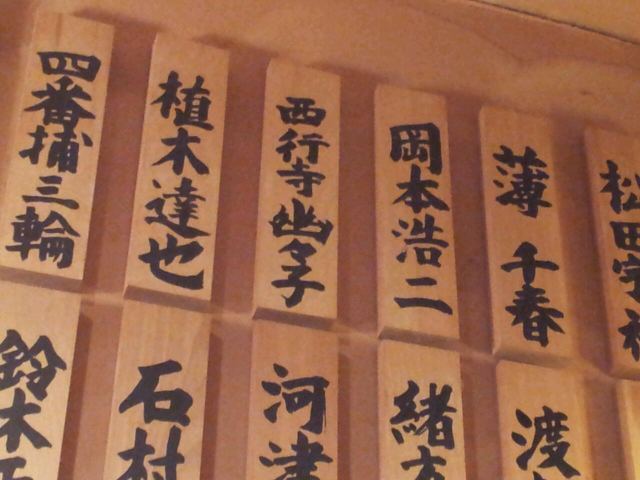 松田宇
薄 千春
岡本浩二
西行寺幽々子
植木達也
四番捕三輪
渡
緒
河津
石村
鈴木